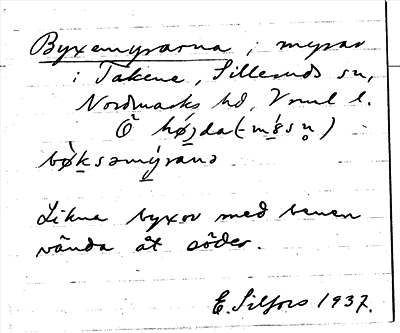 Byxemyrarna, myrar
i Takene, Silleruds sn,
Nordmarks hd, Vrml l.
Ö höjda
bøksəmýrana
Likna byxor med benen
vända åt söder.
E. Silfors 1937.